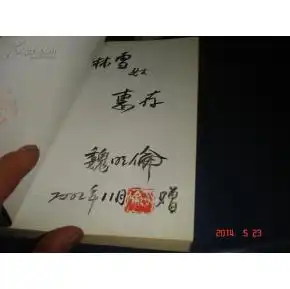 林雪女士
惠存
魏明倫
2002年11月 贈
2014. 5. 23